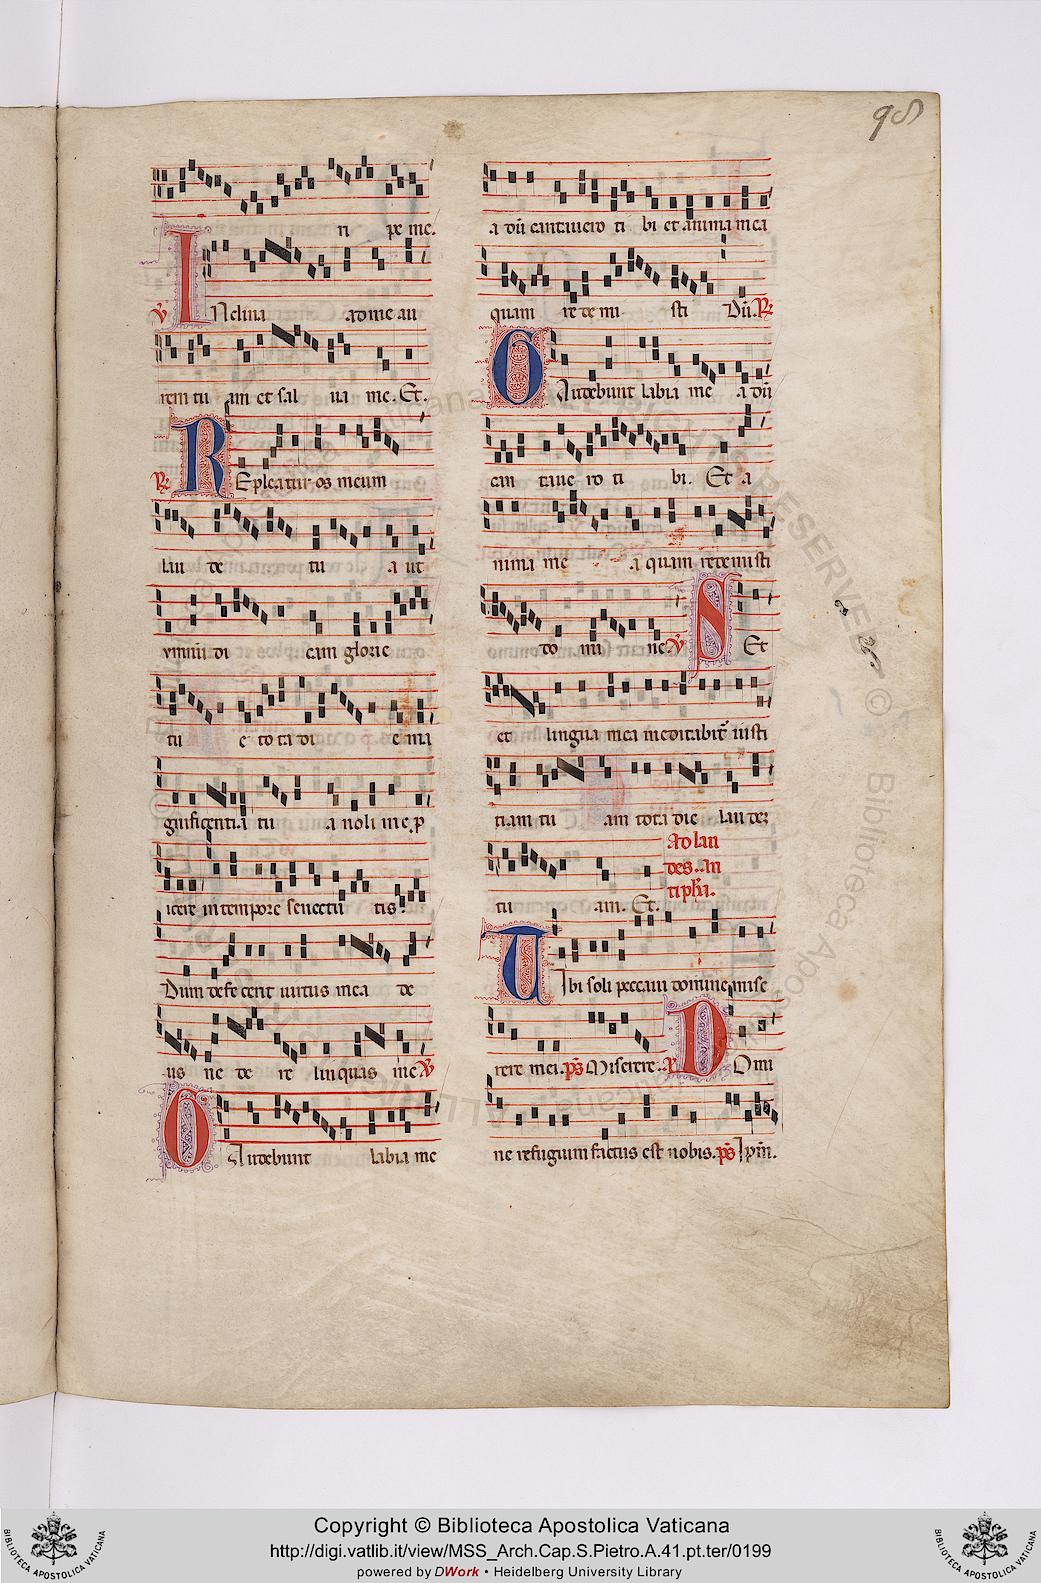 98
ri pe me.
℣ INclina ad me au
rem tu am et sal ua me. Et.
℟ REpleatur os meum
lau de tu a ut
ymnū di cam glorie
tu e tota di e ma
gnificentia tu a noli me p
icere in tempore senectu tis.
Dum defe cerit uirtus mea de
us ne de re linquas me ℣
GAudebunt labia me
a dū cantauero ti bi et anima mea
quam re de mi sti Dn̄. ℟
GAudebunt labia me a dū
can taue ro ti bi. Et a
nima me a quam redemisti
do mi ne. ℣ SEt
et lingua mea meditabit̄ iusti
tiam tu am tota die laudeȝ
Ad lau
des. an
tiph̄a.
tu am. Et.
TIbi soli peccaui domine mise
rere mei. p̄s Miserere. DOmi
ne refugium factus est nobis. p̄s Ip̄m.
Copyright © Biblioteca Apostolica Vaticana
http://digi.vatlib.it/view/MSS_Arch.Cap.S.Pietro.A.41.pt.ter/0199
powered by DWork • Heidelberg University Library
BIBLIOTECA APOSTOLICA VATICANA
BIBLIOTECA APOSTOLICA VATICANA